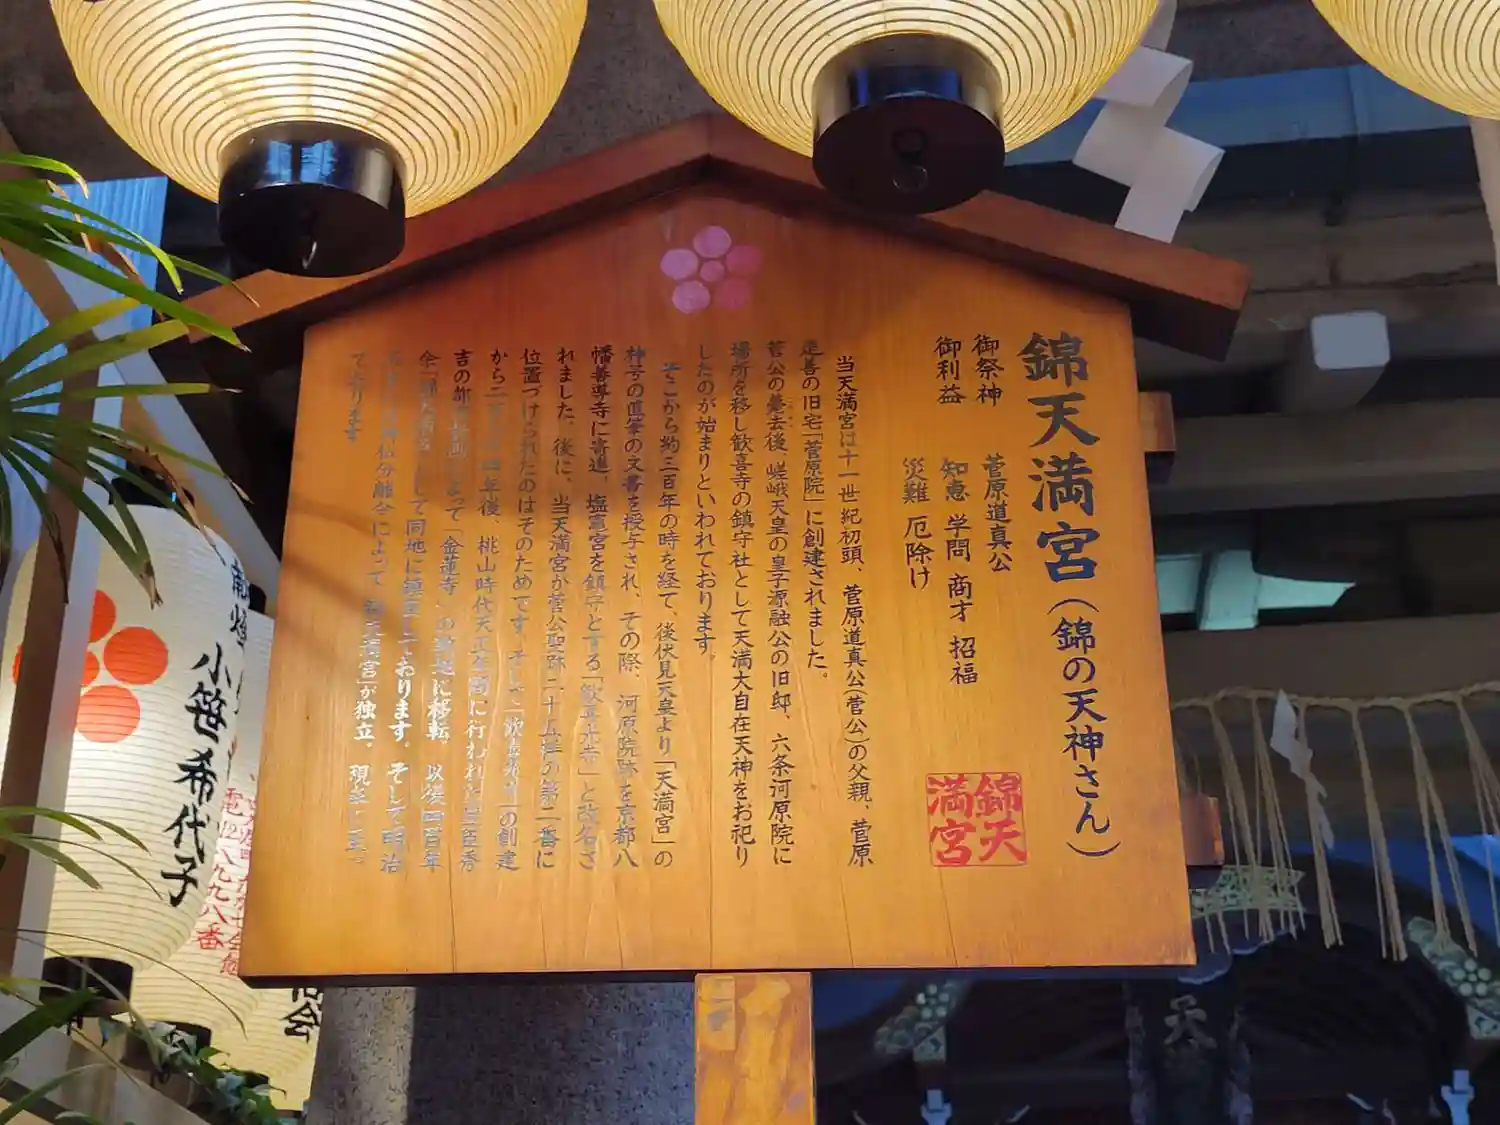 錦天満宮(錦の天神さん)
御祭神 菅原道真公
御利益 知恵 学問 商才 招福
災難 厄除け
錦天
満宮
当天満宮は十一世紀初頭、菅原道真公(菅公)の父親、菅原
是善の旧宅「菅原院」に創建されました。
菅公の薨去後、嵯峨天皇の皇子源融公の旧邸、六条河原院に
場所を移し歓喜寺の鎮守社として天満大自在天神をお祀り
したのが始まりといわれております。
そこから約三百年の時を経て、後伏見天皇より「天満宮」の
神号の直筆の文書を授与され、その際、河原院跡を京都八
幡善導寺に寄進、塩竃宮を鎮守とする「歓喜光寺」と改名さ
れました。後に、当天満宮が菅公聖跡二十五拝の第二番に
位置づけられたのはそのためです。そして「歓喜光寺」の創建
から二百 年後、桃山時代天正年間に行われた豊臣秀
吉の都 によって「金蓮寺」の に移転。以後四百年
余 として同地に鎮座しております。そして明治
神仏分離令によって「錦天満宮」が独立。現在に至っ
ております
小笹希代子
八九九八番
天